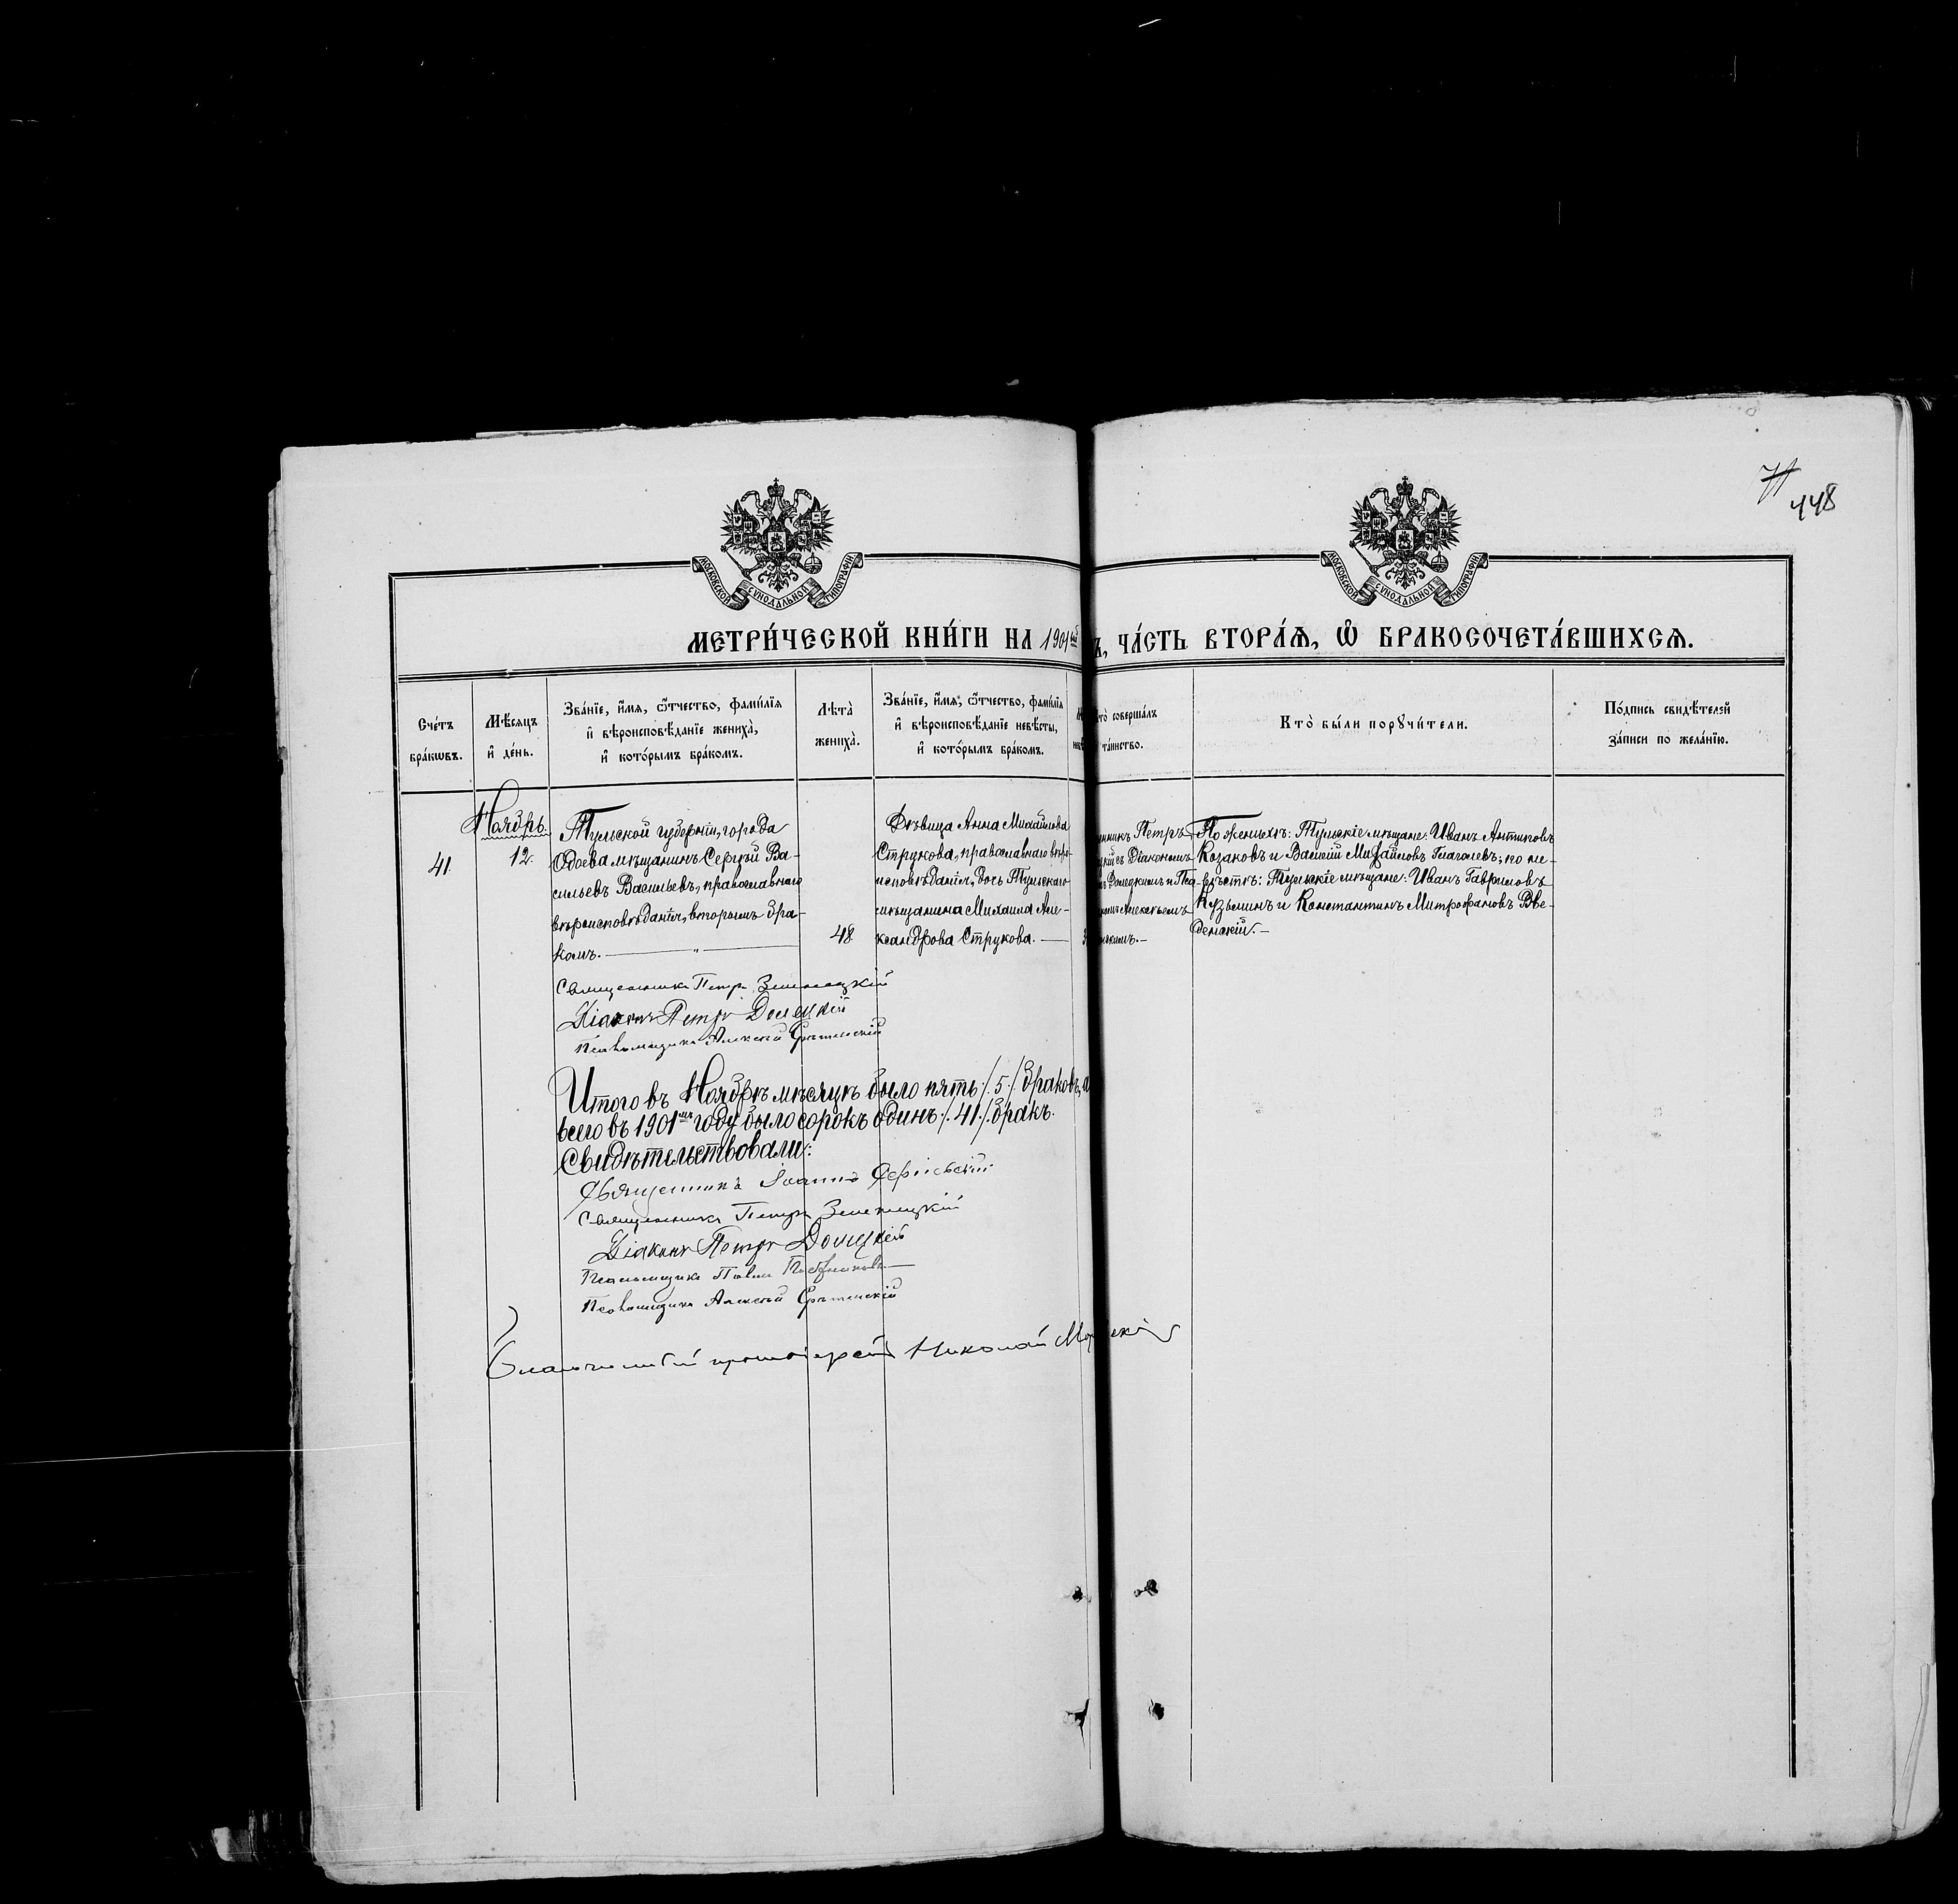 448
МОСКОВСКОЙ СѴНОДАЛЬНОЙ ТИПОГРАФІИ.
МОСКОВСКОЙ СѴНОДАЛЬНОЙ ТИПОГРАФІИ.
МЕТРИ́ЧЕСКОЙ КНИ́ГИ НА 1901ый
Ъ, ЧА́СТЬ ВТОРА́Ѧ, Ѽ БРАКОСОЧЕТА́ВШИХСѦ.
Сче́тъ бра́кѡвъ.
Мѣ́сяцъ и҆ де́нь.
Зва́нїе, и҆́мя, ѻ҆́тчество, фами́лїя
и҆ вѣроисповѣ́данїе жениха̀,
и҆ кото́рымъ бра́комъ.
Лѣта̀ жениха̀.
Зва́нїе, и҆́мя, ѻ҆́тчество, фами́лїя
и҆ вѣроисповѣ́данїе невѣ́сты,
и҆ кото́рымъ бра́комъ.
то̀ соверша́лъ
та́инство.
Кто̀ бы́ли порꙋчи́тели.
По́дпись свидѣ́телей
за́писи по жела́нїю.
Ноябрь.
41.
12.
Тульской губерніи, города
Одоева мѣщанинъ Сергѣй Ва-
сильевъ Васильевъ, православнаго
вѣроисповѣданія, вторымъ бра-
комъ.
48
Дѣвица Анна Михайлова
Струкова, православнаго вѣро-
исповѣданія, дочь Тульскаго
мѣщанина Михаила Але-
ксандрова Струкова.
Петръ
съ Діакономъ
Долецкимъ и Пса-
Алексѣемъ
По женихѣ: Тульскіе мѣщане: Иванъ Антиповъ
Казаковъ и Василій Михайловъ Глаголевъ; по не-
вѣстѣ: Тульскіе мѣщане: Иванъ Гавриловъ
Кузьминъ и Константинъ Митрофановъ Вве-
денскій.
Священникъ Петръ Зеленецкій
Діаконъ Петръ Долецкій
Псаломщикъ Алексѣй Срѣтенскій
Итого въ Ноябрѣ мѣсяцѣ было пять /.5./ браковъ, а
всего въ 1901мъ году было сорокъ одинъ /.41./ бракъ.
Свидѣтельствовали:
Священникъ Іоаннъ
Священникъ Петръ Зеленецкій
Діаконъ Петръ Долецкій
Псаломщикъ Павелъ
Псаломщикъ Алексѣй Срѣтенскій
Благочинный протоіерей Николай